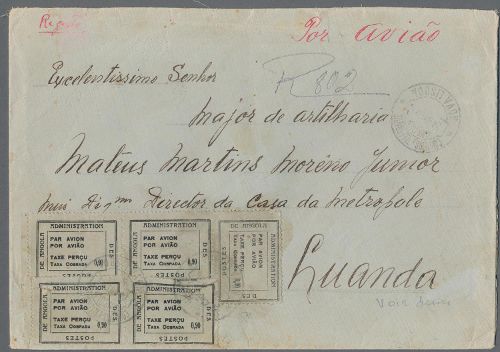 Por Avião
R 802
Excelentissimo Senhor
major de artilharia
Mateus Martins Moreno Junior
mui Di gmo Director da Casa da Metropole
Luanda
ADMINISTRATION
DES
POSTES
DE ANGOLA
PAR AVION
POR AVIÃO
TAXE PERÇU
TAXA COBRADA
0,90
ADMINISTRATION
DES
POSTES
DE ANGOLA
PAR AVION
POR AVIÃO
TAXE PERÇU
TAXA COBRADA
0,90
ADMINISTRATION
DES
POSTES
DE ANGOLA
PAR AVION
POR AVIÃO
TAXE PERÇU
TAXA COBRADA
0,90
ADMINISTRATION
DES
POSTES
DE ANGOLA
PAR AVION
POR AVIÃO
TAXE PERÇU
TAXA COBRADA
0,90
ADMINISTRATION
DES
POSTES
DE ANGOLA
PAR AVION
POR AVIÃO
TAXE PERÇU
TAXA COBRADA
0,90
Voir